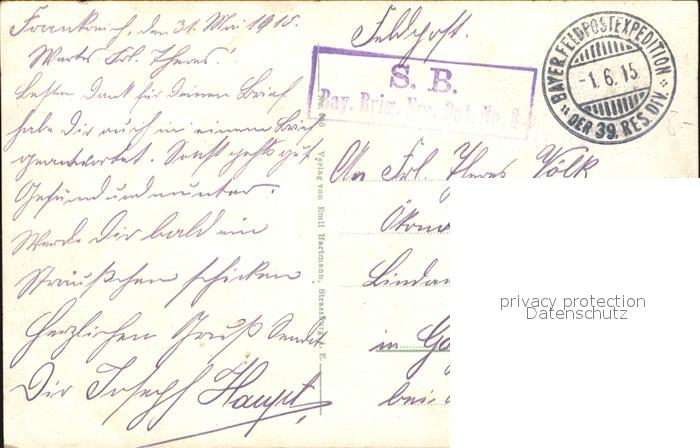 Frankreich, den 31. Mai 1915.
Werte Frl. Theres!
Besten Dank für Deinen Brief
habe Dir auch in einem Brief
geantwortet. Sonst gehts gut
Gesund und munter.
Werde Dir bald ein
Sträußchen schicken.
Herzlichen Gruß Sendet
Dir Joseph Haupt
Feldpost.
S. B.
Bay. Brig. Ers. Bat. No.
BAYER. FELDPOSTEXPEDITION
-1.6.15
DER 39. RES. DIV.
Verlag von Emil Hartmann, Strassburg i. E.
An Frl. Theres Völk
Ökono
Lindau
in Ge
bei
privacy protection
Datenschutz